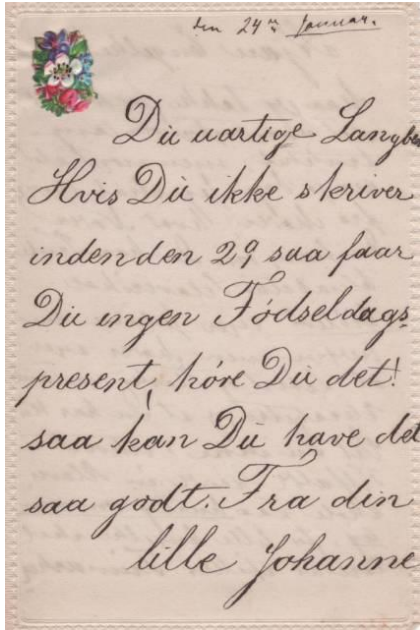 den 24de Januar.
Du uartige Langben
Hvis Du ikke skriver
inden den 29 saa faar
Du ingen Fødseldags-
present, hóre Du det!
saa kan Du have det
saa godt. Fra din
lille Johanne